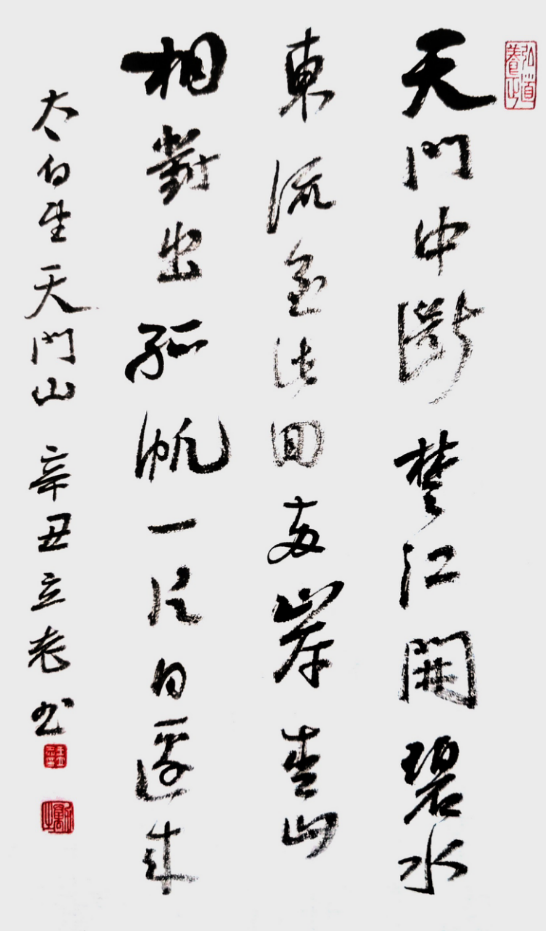 天門中斷楚江開碧水
東流至此回兩岸青山
相對出孤帆一片日邊來
太白望天門山 辛丑立老书